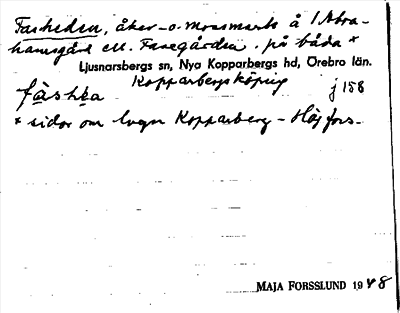 Fasheden, åker- o. mossmark å 1 Abra-
hamsgård ell. Fasegården, på båda x
Ljusnarsbergs sn, Nya Kopparbergs hd, Örebro län.
Kopparbergs köping
fàshèa j 158
x sidor om lvgn Kopparberg - Högfors.
MAJA FORSSLUND 1948